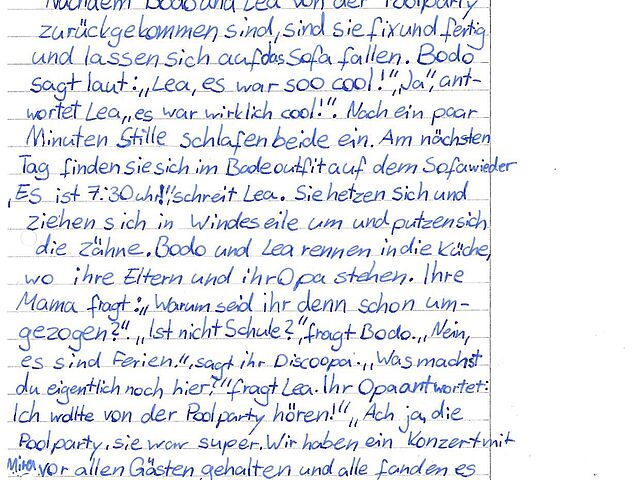 Nachdem Bodo und Lea von der Poolparty
zurückgekommen sind, sind sie fix und fertig
und lassen sich auf das Sofa fallen. Bodo
sagt laut: „Lea, es war soo cool!", „Ja", ant-
wortet Lea, „es war wirklich cool!". Nach ein paar
Minuten Stille schlafen beide ein. Am nächsten
Tag finden sie sich im Badeoutfit auf dem Sofa wieder
„Es ist 7:30 uhr!" schreit Lea. Sie hetzen sich und
ziehen sich in Windeseile um und putzen sich
die Zähne. Bodo und Lea rennen in die Küche,
wo ihre Eltern und ihr Opa stehen. Ihre
Mama fragt: „Warum seid ihr denn schon um-
gezogen?" „Ist nicht Schule?", fragt Bodo. „Nein,
es sind Ferien.", sagt ihr Discoopa. „Was machst
du eigentlich noch hier?" fragt Lea. Ihr Opa antwortet:
Ich wollte von der Poolparty hören!" „Ach ja, die
Poolparty, sie war super. Wir haben ein Konzert mit
Mira vor allen Gästen gehalten und alle fanden es